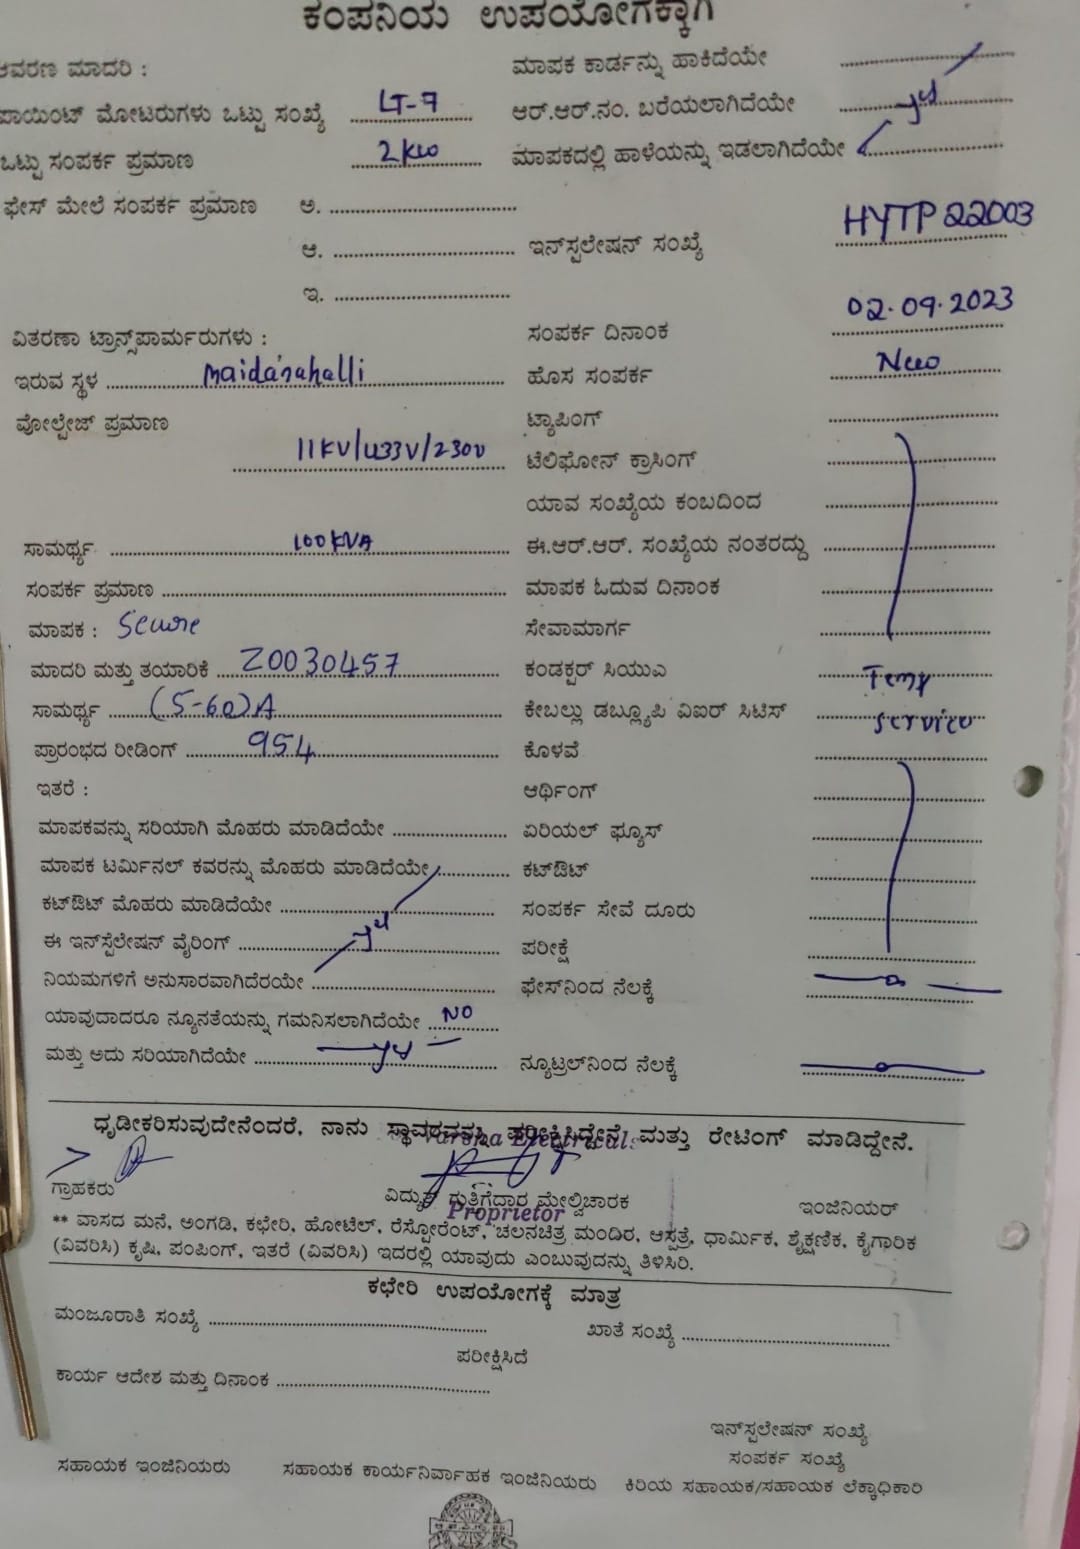 ಕಂಪನಿಯ ಉಪಯೋಗಕ್ಕಾಗಿ
ಆವರಣ ಮಾದರಿ :
ಮಾಪಕ ಕಾರ್ಡನ್ನು ಹಾಕಿದೆಯೇ
ಪಾಯಿಂಟ್ ಮೋಟರುಗಳು ಒಟ್ಟು ಸಂಖ್ಯೆ LT-7
ಆರ್.ಆರ್.ನಂ. ಬರೆಯಲಾಗಿದೆಯೇ yes
ಒಟ್ಟು ಸಂಪರ್ಕ ಪ್ರಮಾಣ 2kw
ಮಾಪಕದಲ್ಲಿ ಹಾಳೆಯನ್ನು ಇಡಲಾಗಿದೆಯೇ
ಫೇಸ್ ಮೇಲೆ ಸಂಪರ್ಕ ಪ್ರಮಾಣ ಅ.
ಆ.
ಇನ್‌ಸ್ಪಲೇಷನ್ ಸಂಖ್ಯೆ HYTP22003
ಇ.
ವಿತರಣಾ ಟ್ರಾನ್ಸ್‌ಪಾರ್ಮರುಗಳು :
ಸಂಪರ್ಕ ದಿನಾಂಕ 02.09.2023
ಇರುವ ಸ್ಥಳ Maidanahalli
ಹೊಸ ಸಂಪರ್ಕ New
ವೋಲ್ಟೇಜ್ ಪ್ರಮಾಣ
11KV/433V/230V
ಟ್ಯಾಪಿಂಗ್
ಟೆಲಿಫೋನ್ ಕ್ರಾಸಿಂಗ್
ಯಾವ ಸಂಖ್ಯೆಯ ಕಂಬದಿಂದ
ಸಾಮರ್ಥ್ಯ 100KVA
ಈ.ಆರ್.ಆರ್. ಸಂಖ್ಯೆಯ ನಂತರದ್ದು
ಸಂಪರ್ಕ ಪ್ರಮಾಣ
ಮಾಪಕ ಓದುವ ದಿನಾಂಕ
ಮಾಪಕ : Secure
ಸೇವಾಮಾರ್ಗ
ಮಾದರಿ ಮತ್ತು ತಯಾರಿಕೆ Z0030457
ಕಂಡಕ್ಟರ್ ಸಿಯುಎ Temp
ಸಾಮರ್ಥ್ಯ (5-60)A
ಕೇಬಲ್ಲು ಡಬ್ಲ್ಯೂಪಿ ವಿಐರ್ ಸಿಟಿಸ್ service
ಪ್ರಾರಂಭದ ರೀಡಿಂಗ್ 954
ಕೊಳವೆ
ಇತರೆ :
ಆರ್ಥಿಂಗ್
ಮಾಪಕವನ್ನು ಸರಿಯಾಗಿ ಮೊಹರು ಮಾಡಿದೆಯೇ
ಏರಿಯಲ್ ಫ್ಯೂಸ್
ಮಾಪಕ ಟರ್ಮಿನಲ್ ಕವರನ್ನು ಮೊಹರು ಮಾಡಿದೆಯೇ
ಕಟ್‌ಔಟ್
ಕಟ್‌ಔಟ್ ಮೊಹರು ಮಾಡಿದೆಯೇ
ಸಂಪರ್ಕ ಸೇವೆ ದೂರು
ಈ ಇನ್‌ಸ್ಪೆಲೇಷನ್ ವೈರಿಂಗ್ yes
ಪರೀಕ್ಷೆ
ನಿಯಮಗಳಿಗೆ ಅನುಸಾರವಾಗಿದೆರಯೇ
ಫೇಸ್‌ನಿಂದ ನೆಲಕ್ಕೆ
ಯಾವುದಾದರೂ ನ್ಯೂನತೆಯನ್ನು ಗಮನಿಸಲಾಗಿದೆಯೇ NO
ಮತ್ತು ಅದು ಸರಿಯಾಗಿದೆಯೇ yes
ನ್ಯೂಟ್ರಲ್‌ನಿಂದ ನೆಲಕ್ಕೆ
ಧೃಡೀಕರಿಸುವುದೇನೆಂದರೆ, ನಾನು ಸ್ಥಾವರವನ್ನು ಪರೀಕ್ಷಿಸಿದ್ದೇನೆ ಮತ್ತು ರೇಟಿಂಗ್ ಮಾಡಿದ್ದೇನೆ.
Electricals
ಗ್ರಾಹಕರು
ವಿದ್ಯುತ್ ಗುತ್ತಿಗೆದಾರ ಮೇಲ್ವಿಚಾರಕ
ಇಂಜಿನಿಯರ್
Proprietor
** ವಾಸದ ಮನೆ, ಅಂಗಡಿ, ಕಛೇರಿ, ಹೋಟೆಲ್, ರೆಸ್ಟೋರೆಂಟ್, ಚಲನಚಿತ್ರ ಮಂದಿರ, ಆಸ್ಪತ್ರೆ, ಧಾರ್ಮಿಕ, ಶೈಕ್ಷಣಿಕ, ಕೈಗಾರಿಕ
(ವಿವರಿಸಿ) ಕೃಷಿ, ಪಂಪಿಂಗ್, ಇತರೆ (ವಿವರಿಸಿ) ಇದರಲ್ಲಿ ಯಾವುದು ಎಂಬುವುದನ್ನು ತಿಳಿಸಿರಿ.
ಕಛೇರಿ ಉಪಯೋಗಕ್ಕೆ ಮಾತ್ರ
ಮಂಜೂರಾತಿ ಸಂಖ್ಯೆ
ಖಾತೆ ಸಂಖ್ಯೆ
ಪರೀಕ್ಷಿಸಿದೆ
ಕಾರ್ಯ ಆದೇಶ ಮತ್ತು ದಿನಾಂಕ
ಇನ್‌ಸ್ಪಲೇಷನ್ ಸಂಖ್ಯೆ
ಸಂಪರ್ಕ ಸಂಖ್ಯೆ
ಸಹಾಯಕ ಇಂಜಿನಿಯರು
ಸಹಾಯಕ ಕಾರ್ಯನಿರ್ವಾಹಕ ಇಂಜಿನಿಯರು
ಕಿರಿಯ ಸಹಾಯಕ/ಸಹಾಯಕ ಲೆಕ್ಕಾಧಿಕಾರಿ